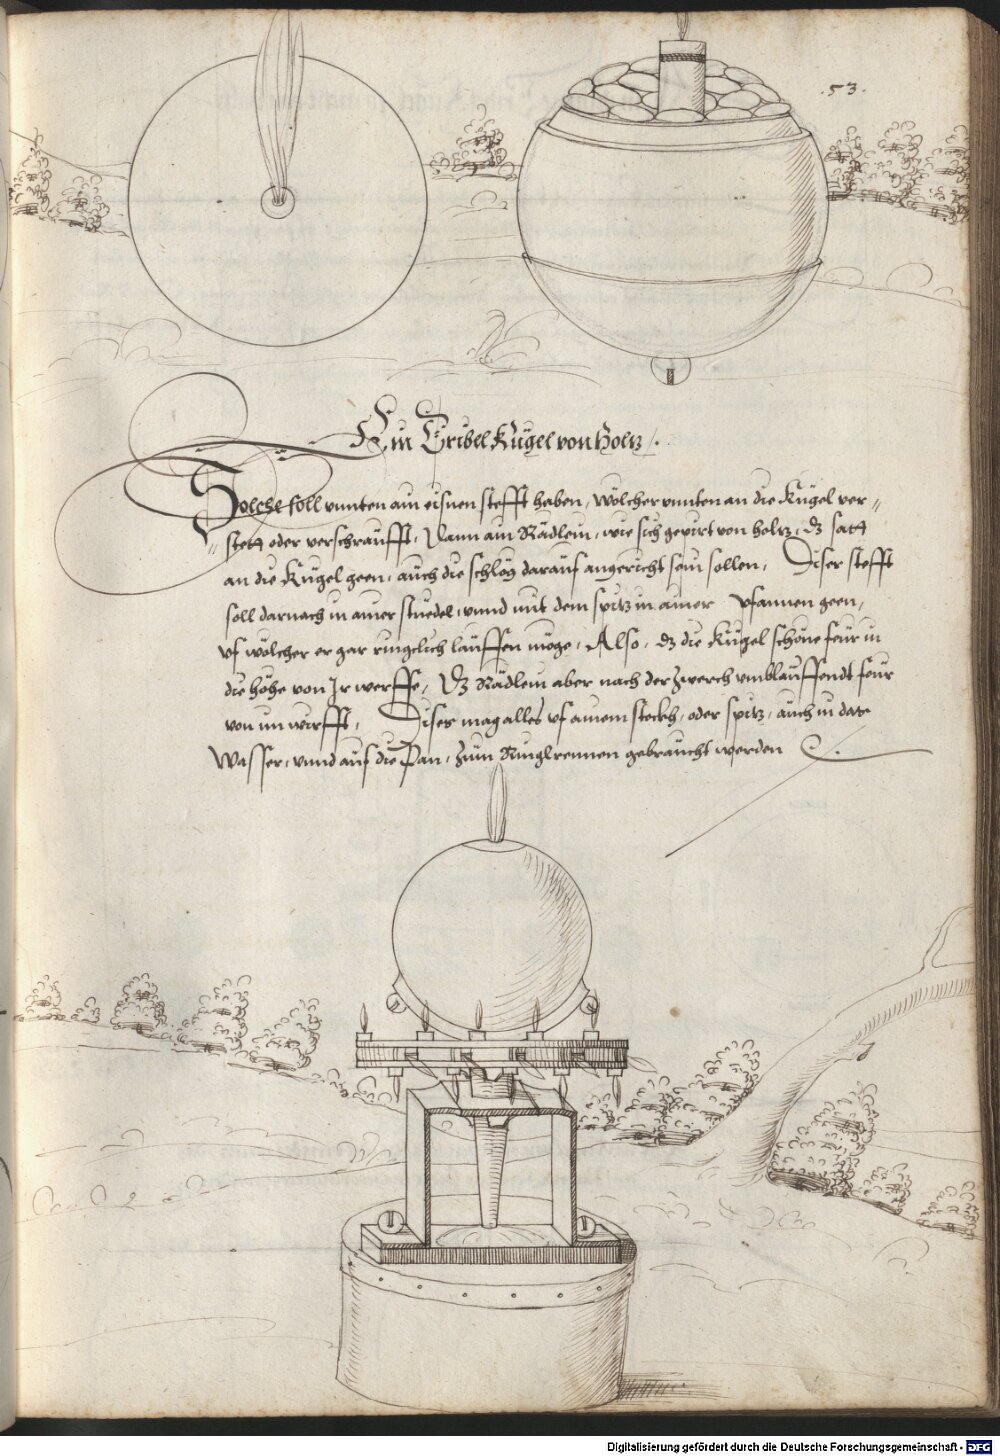 .53.
Ein Tribel Kugel von Holtz /.
Solche soll vnnten ain eisnen stefft haben, wölcher vnnten an die Kugel ver=
stett oder verschraufft, Dann ain Rädlein, wie sich gepürt von holtz, dz satt
an die Kugel geen, auch die schleg darauf angericht sein sollen, Diser stefft
soll darnach in ainer studel, vnnd mit dem spitz in ainer Pfannen geen,
vf wölcher er gar ringclich lauffen möge, Also, dz die Kugel schöne feür in
die höhe von Ir werffe, Dz Rädlein aber nach der Zwerch vmblauffendt feür
von im wirfft, Dises mag alles vf ainem steckh, oder spitz, auch in dass
Wasser, vnnd auf die Pan, zum Ringlrennen gebraucht werden
Digitalisierung gefördert durch die Deutsche Forschungsgemeinschaft - DFG